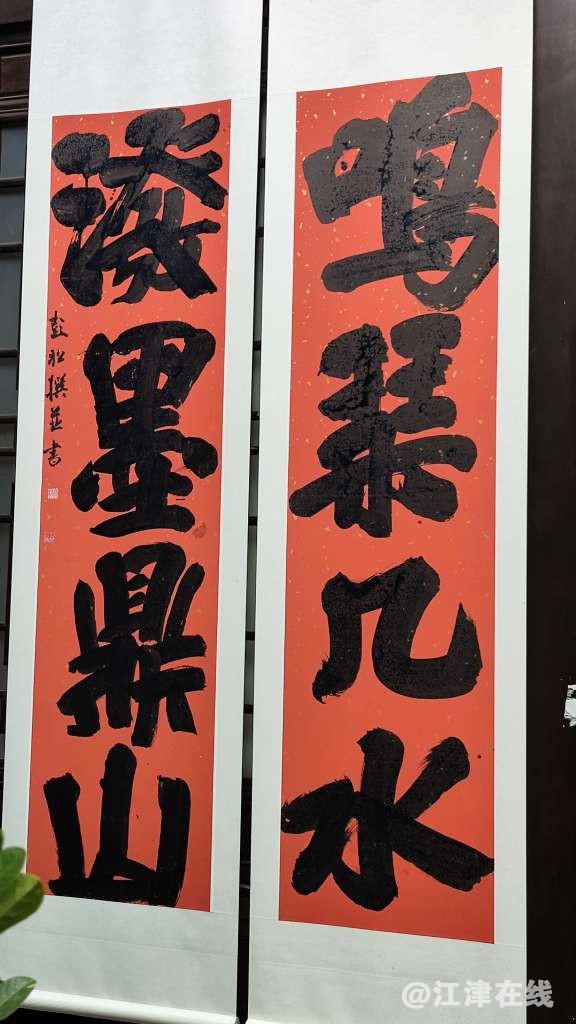 鸣琴几水
泼墨鼎山
彭松撰并书
@江津在线